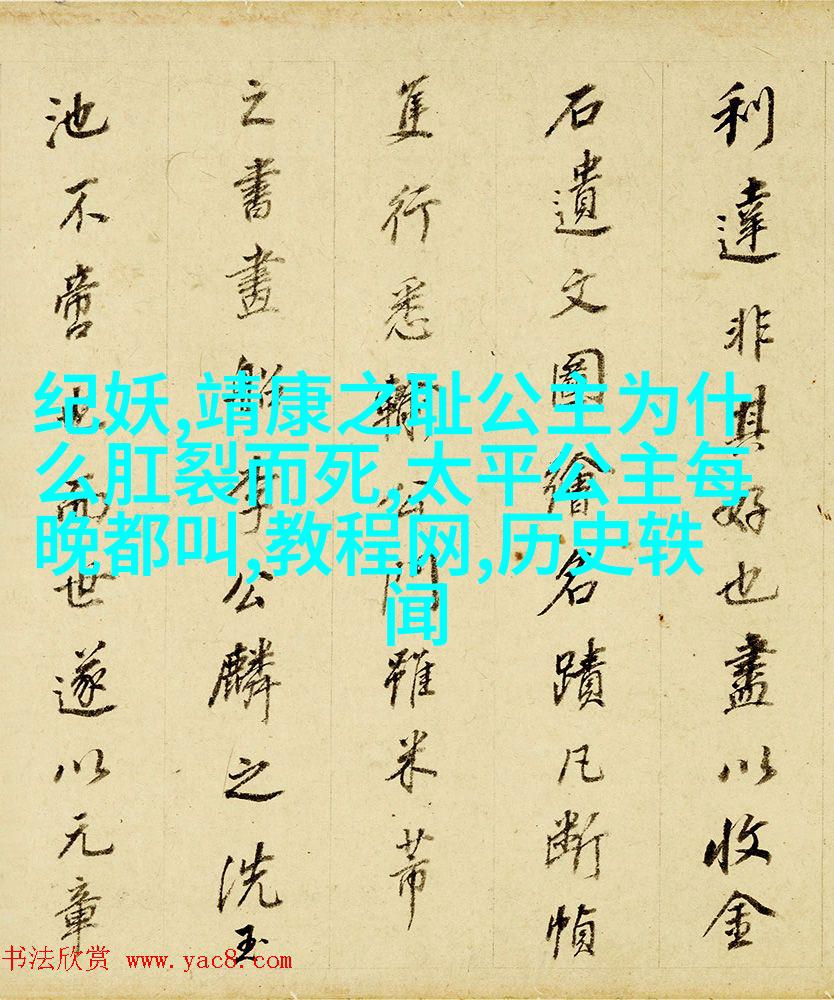 利達非其好也盡以收金
石遺文圖繪名蹟凡斷幀
隻行悉輸公門雖米芾
之書畫舡李公麟之洗玉
池不啻也而世遂以元章
纪妖,靖康之耻公主为什
么肛裂而死,太平公主每
晚都叫,教程网,历史轶
闻
书法欣赏 www.yac8.com